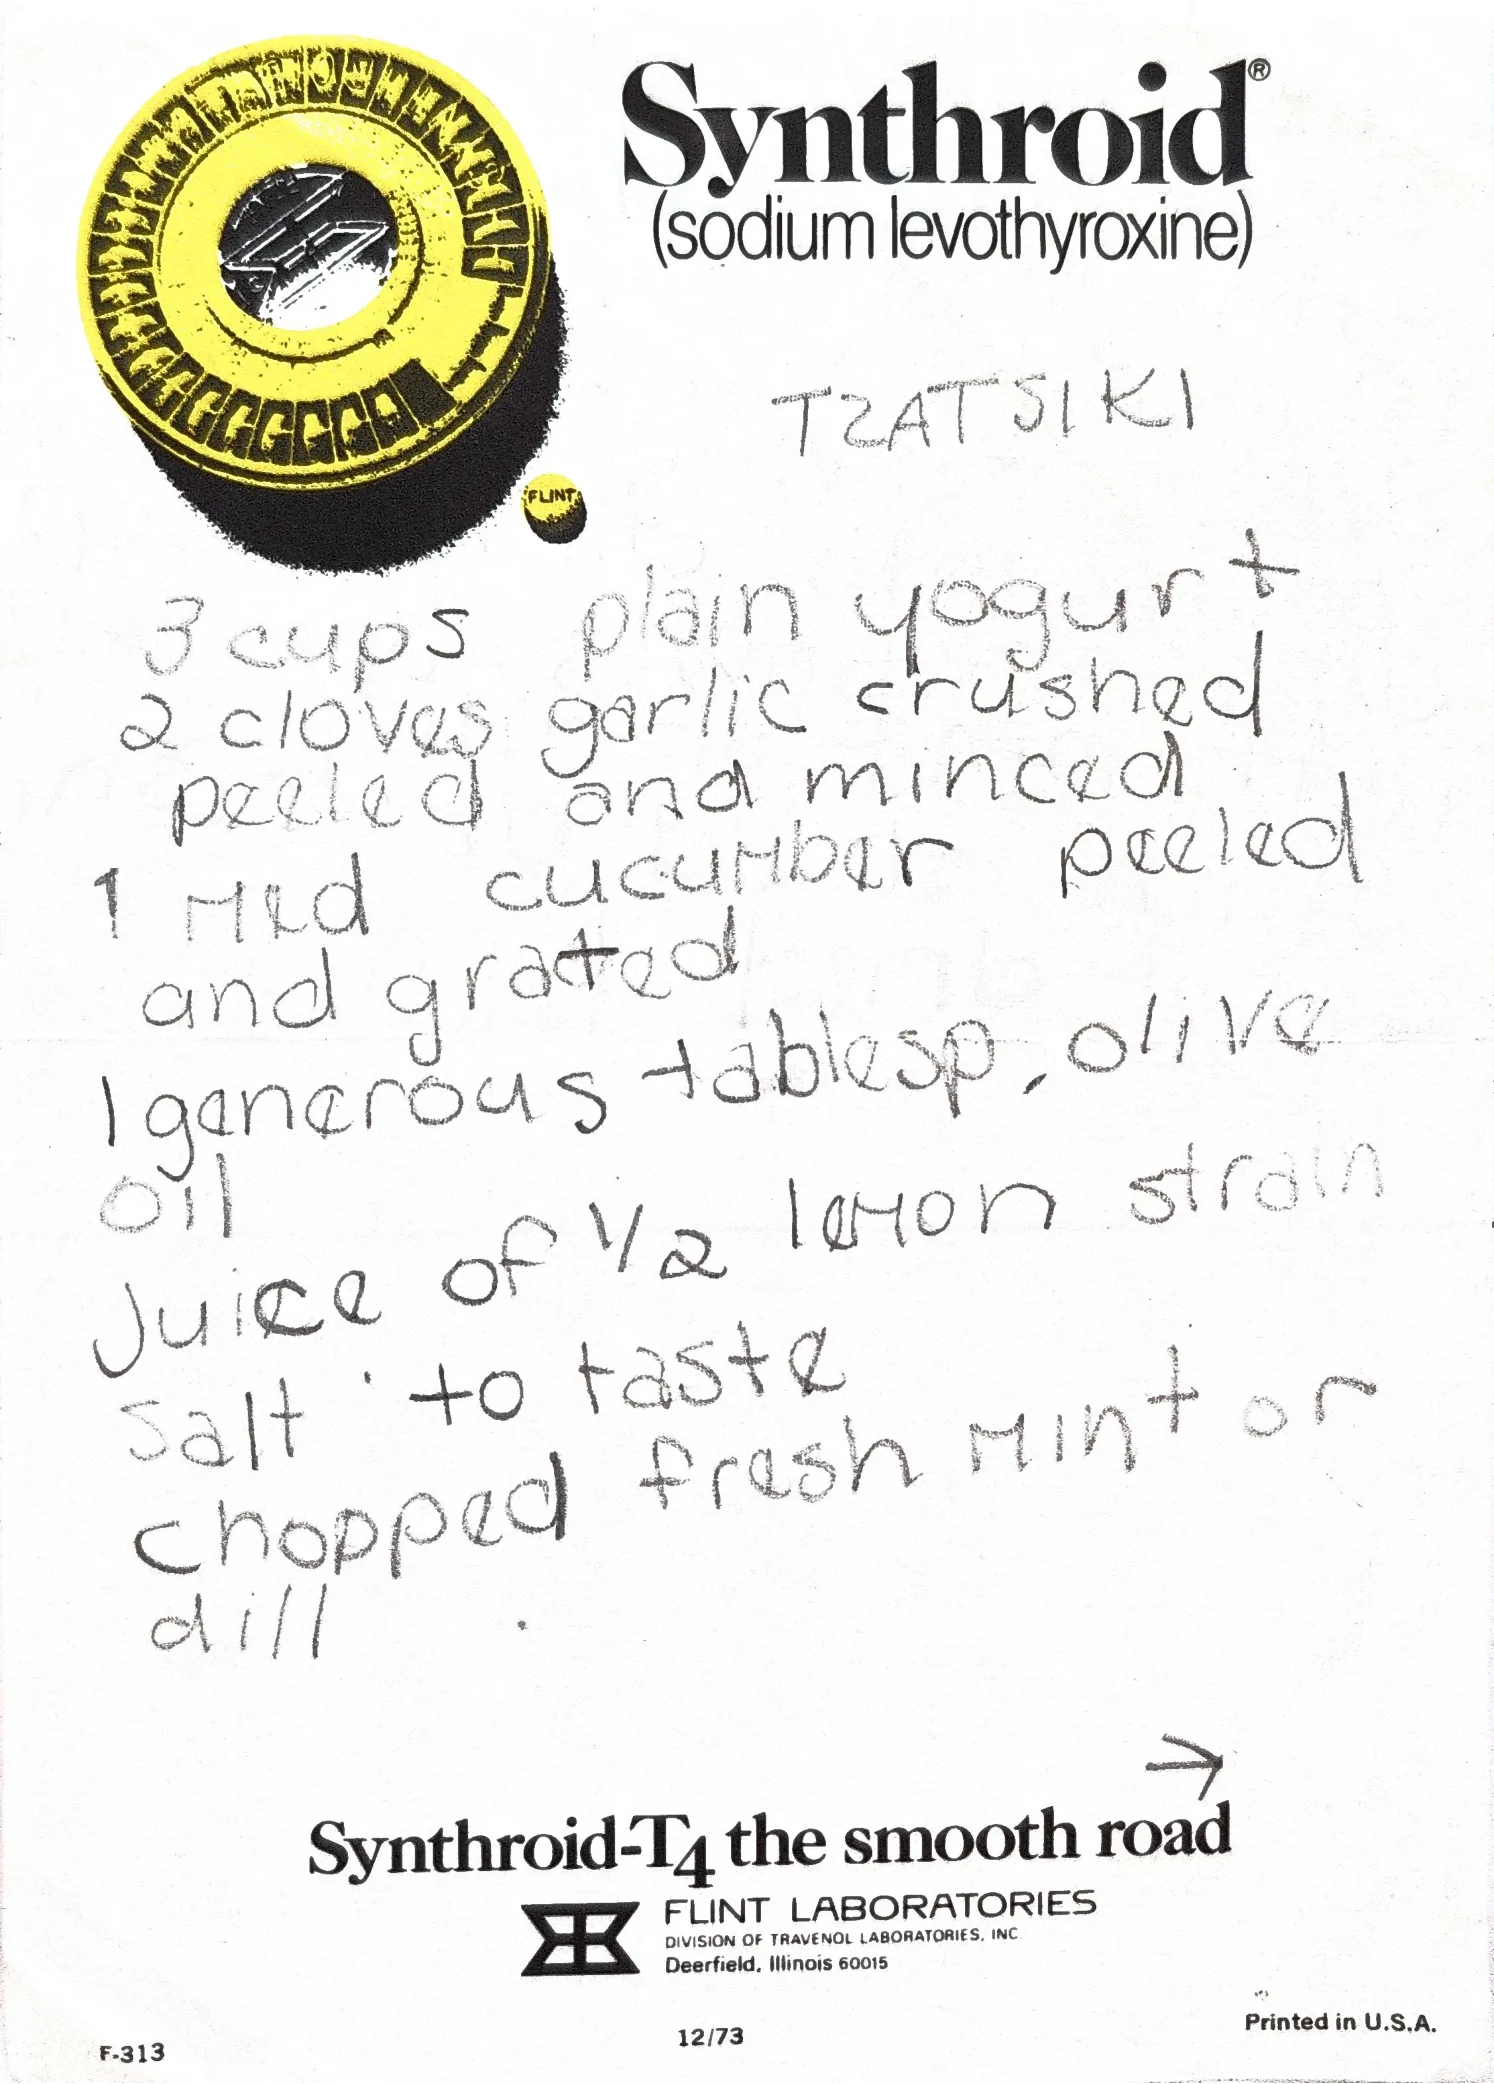 Synthroid®
(sodium levothyroxine)
TZATSIKI
FLINT
3 cups plain yogurt
2 cloves garlic crushed
peeled and minced
1 Med cucumber peeled
and grated
1 generous tablesp. olive
oil
Juice of 1/2 lemon strain
salt to taste
chopped fresh mint or
dill
→
Synthroid-T4 the smooth road
FLINT LABORATORIES
DIVISION OF TRAVENOL LABORATORIES, INC.
Deerfield, Illinois 60015
Printed in U.S.A.
12/73
F-313